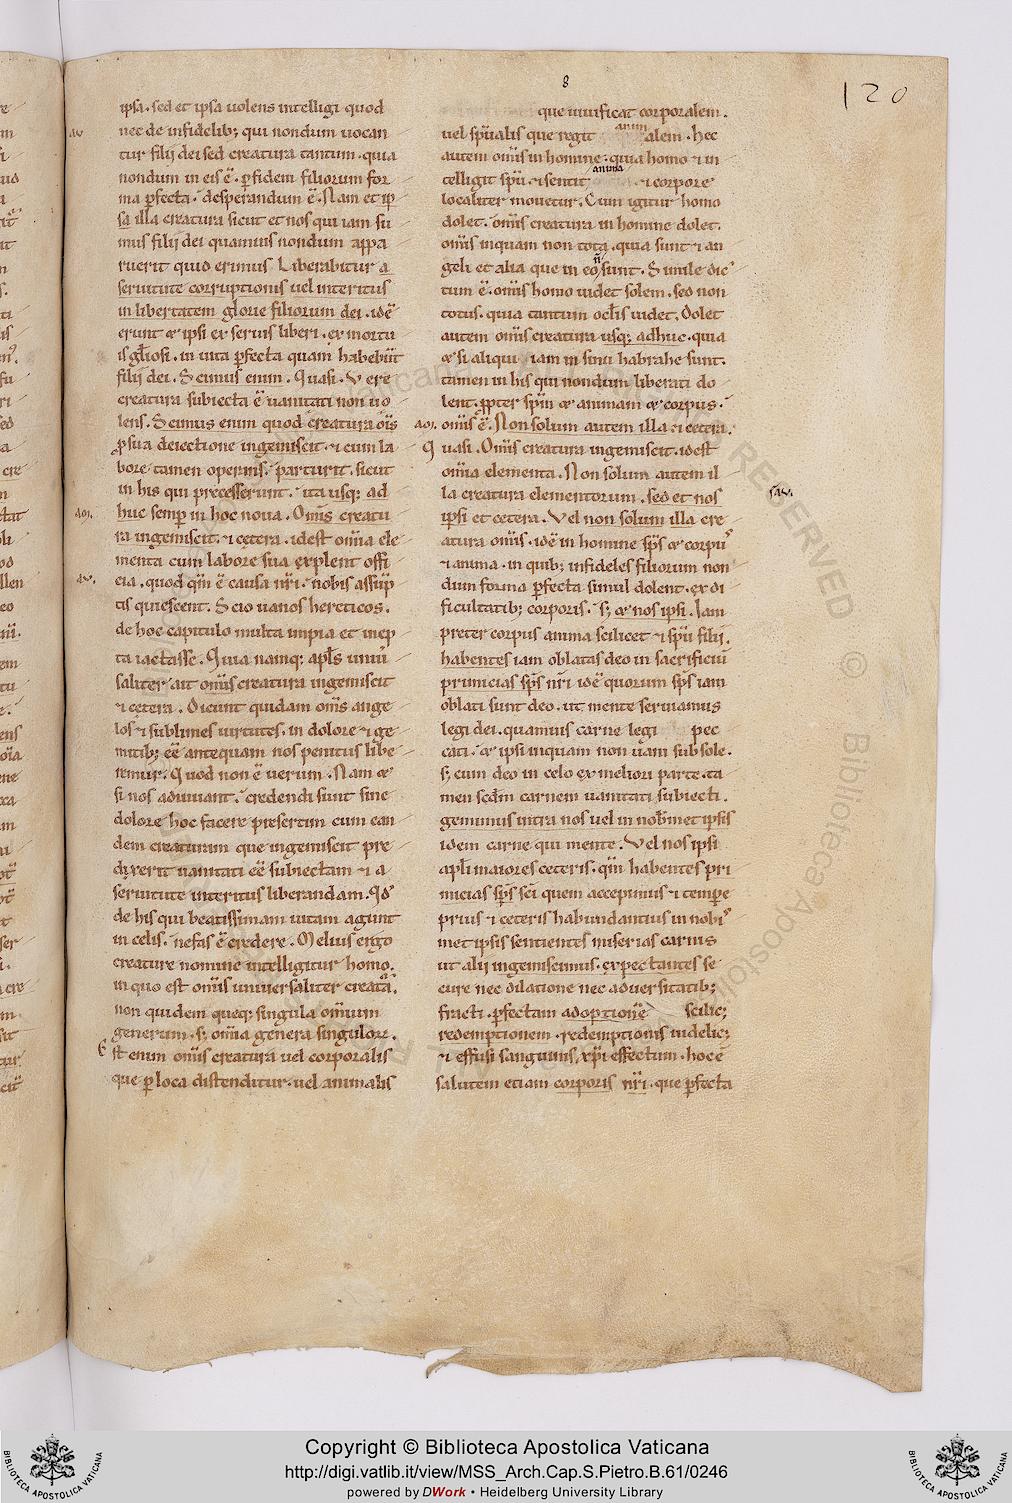 8
120
ipsa. sed et ipsa uolens intelligi quod
nec de infidelib; qui nondum uocan
tur filij dei sed creatura tantum. quia
nondum in eis ē. p fidem filiorum for
ma pfecta. desperandum ē. Nam et ip
sa illa creatura sicut et nos qui iam su
mus filij dei quamuis nondum appa
ruerit quid erimus Liberabitur a
seruitute corruptionis uel interitus
in libertatem glorie filiorum dei. idē
erunt & ipsi ex seruis liberi. ex mortu
is gliosi. in uita pfecta quam habebūt
filij dei. Scimus enim. Quasi. Vere
creatura subiecta ē uanitati non uo
lens. Scimus enim quod creatura oīs
p sua deiectione ingemiscit. & cum la
bore tamen operans. parturit. sicut
in his qui precesserunt. ita usq; ad
huc semp in hoc noua. Omīs creatu
ra ingemiscit. & cetera. idest omīa ele
menta cum labore sua explent offi
cia. quod qm ē causa nrī. nobis assūp
tis quiescent. Scio uanos hereticos.
de hoc capitulo multa impia et inep
ta iactasse. Quia namq; apls uniū
saliter ait omīs creatura ingemiscit
& cetera. Dicunt quidam omīs ange
los & sublimes uirtutes. in dolore & ge
mitib; eē antequam nos penitus libe
remur. Quod non ē uerum. Nam &
si nos adiuuant. credendi sunt sine
dolore hoc facere presertim cum ean
dem creaturam que ingemiscit pre
dixerit uanitati eē subiectam & a
seruitute interitus liberandam. Qd
de his qui beatissimam uitam agunt
in celis. nefas ē credere. Melius ergo
creature nomine intelligitur homo.
in quo est omīs uniuersaliter creatā.
non quidem queq; singula omnium
generum. s; omīa genera singulorum.
Est enim omīs creatura uel corporalis
que p loca distenditur. uel animalis
que uiuificat corporalem.
uel spūalis que regit animalem. hec
autem omīs in homine. quia homo & in
telligit spū. & sentit anima & corpore
localiter mouetur. Cum igitur homo
dolet. omīs creatura in homine dolet.
omīs inquam non tota. quia sunt & an
geli et alia que in eo n̄ sunt. Simile dic
tum ē. omīs homo uidet solem. sed non
totus. quia tantum oclis uidet. Dolet
autem omīs creatura usq; adhuc. quia
& si aliqui iam in sinu habrahe sunt.
tamen in his qui nondum liberati do
lent. ppter spm & animam & corpus.
omīs ē. Non solum autem illa & cetera.
Quasi. Omīs creatura ingemiscit. idest
omīa elementa. Non solum autem il
la creatura elementorum. sed et nos
ipsi et cetera. Vel non solum illa cre
atura omīs. idē in homine sps & corpus
& anima. in quib; infideles filiorum non
dum forma pfecta simul dolent. ex di
ficultatib; corporis. s; & nos ipsi. Iam
preter corpus anima scilicet & spū filij.
habentes iam oblatas deo in sacrificiū
primicias sps nrī idē quorum sps iam
oblati sunt deo. ut mente seruiamus
legi dei. quamuis carne legi pec
cati. & ipsi inquam non iam sub sole.
s; cum deo in celo ex meliori parte. ta
men scdm carnem uanitati subiecti.
gemimus intra nos uel in nobmet ipsis
idem carne qui mente. Vel nos ipsi
apli maiores ceteris. qm habentes pri
micias sps sci quem accepimus & tempre
prius & ceteris habundantius in nobis
met ipsis sentientes miserias carnis
ut alij ingemiscimus. expectantes se
cure nec dilatione nec aduersitatib;
fracti. pfectam adoptionē scilic;
redemptionem. redemptionis uidelic;
& effusi sanguinis xpī effectum. hoc ē
salutem etiam corporis nrī. que pfecta
Copyright © Biblioteca Apostolica Vaticana
http://digi.vatlib.it/view/MSS_Arch.Cap.S.Pietro.B.61/0246
powered by DWork • Heidelberg University Library
BIBLIOTECA APOSTOLICA VATICANA
BIBLIOTECA APOSTOLICA VATICANA